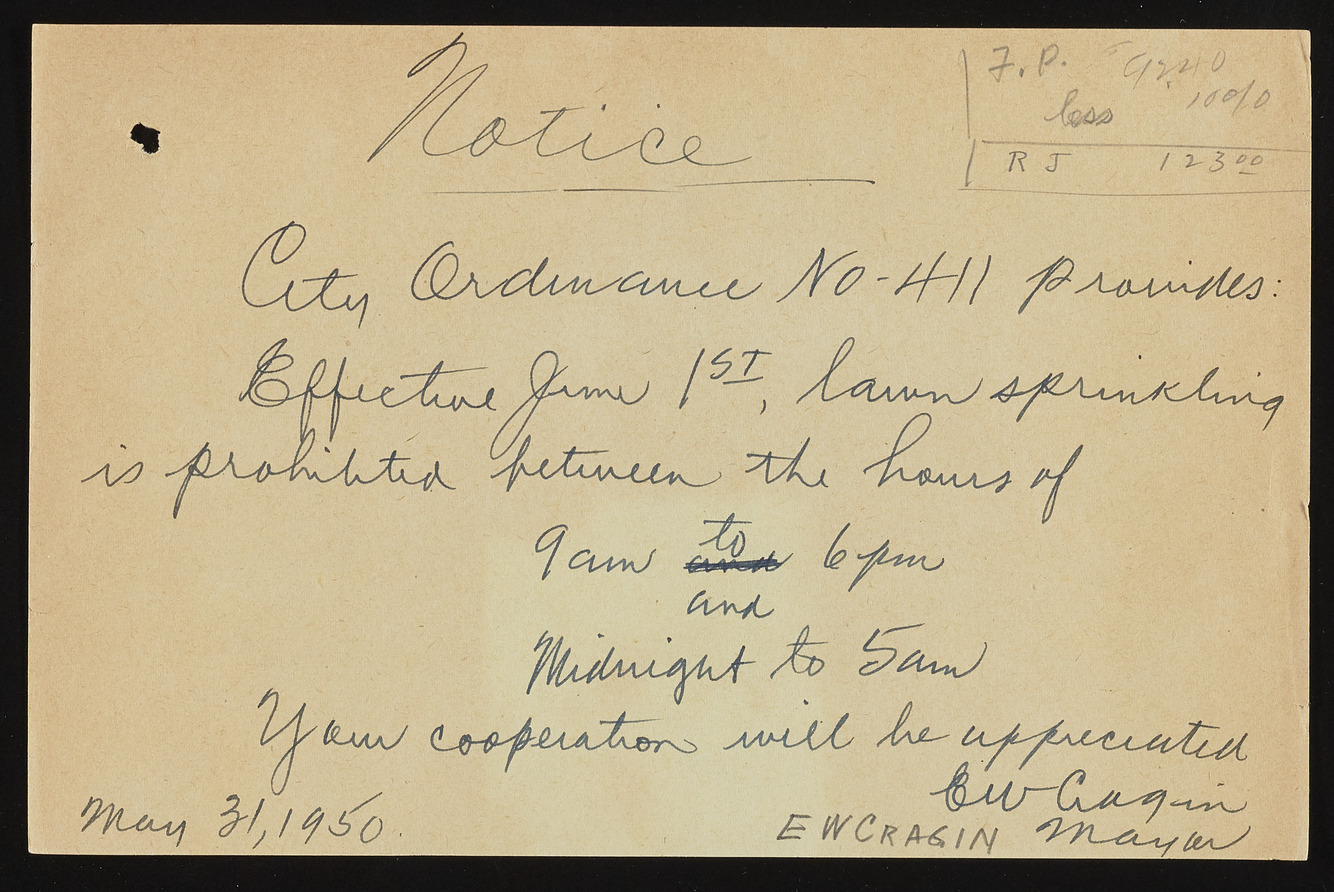 Notice
F.P. 9240
less 10%
RJ 123⁰⁰
City Ordinance No-411 provides:
Effective June 1ST, lawn sprinkling
is prohibited between the hours of
to
9am and 6pm
and
Midnight to 5am
Your cooperation will be appreciated
EW Cragin
May 31, 1950. EWCRAGIN Mayor